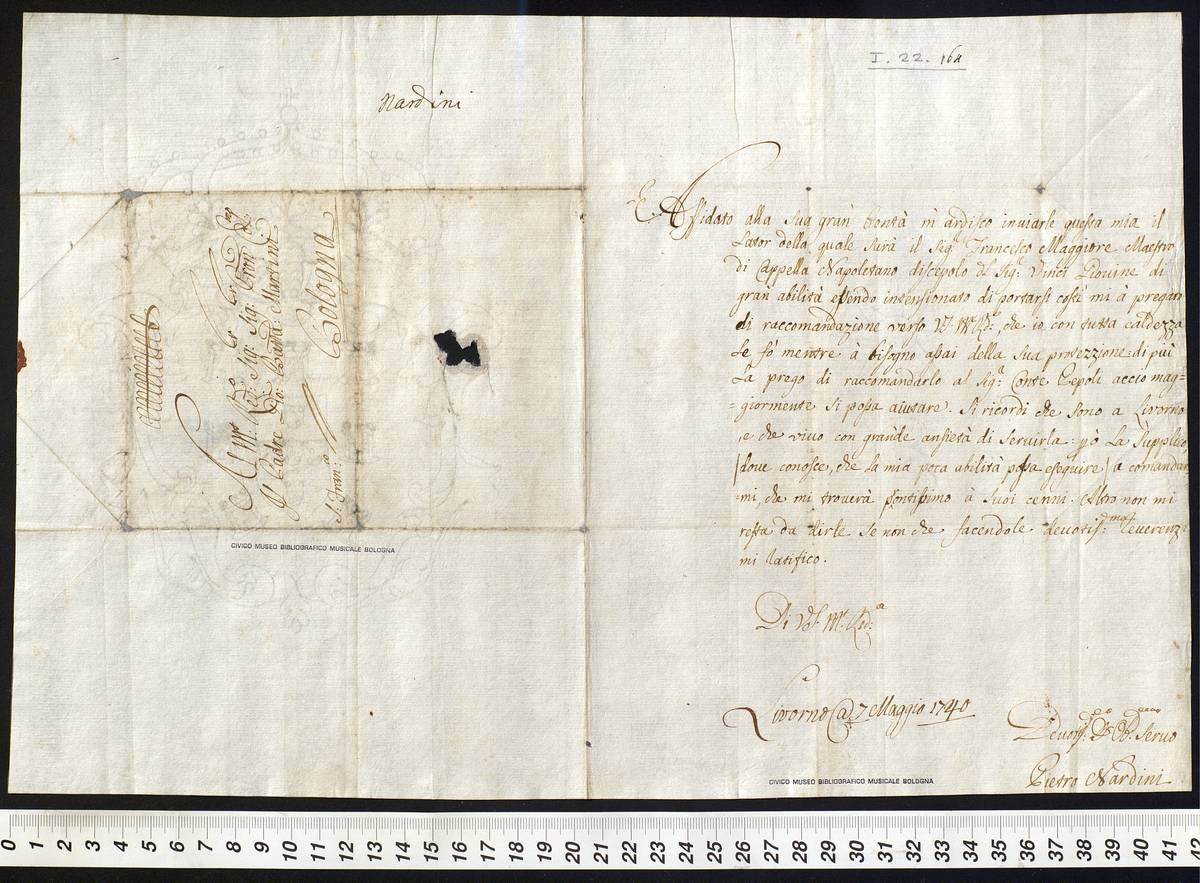 I. 22. 162
Nardini
Al M.to Re.do Sig: Sig: Pron Col.mo
Il Padre Gio: Batta: Martini
Bologna
S. Fran:co
CIVICO MUSEO BIBLIOGRAFICO MUSICALE BOLOGNA
Affidato alla sua gran bontà m'ardisco inviarle questa mia il
Lator della quale sarà il Sig.r Francesco Maggiore Maestro
di Cappella Napoletano discepolo del Sig.r Vinci Giovine di
gran abilità essendo intensionato di portarsi costì mi à pregato
di raccomandazione verso V.S. M.to R.da, che io con tutta caldezza
le fò mentre à bisogno assai della sua protezzione: di più
La prego di raccomandarlo al Sig.r Conte Pepoli acciò mag=
=giormente si possa aiutare. Si ricordi che sono a Livorno
, e che vivo con grande ansietà di servirla: però La supplico
(dove conosce, che la mia poca abilità possa eseguire) a comandar
=mi, che mi troverà prontissimo à suoi cenni. Altro non mi
resta da dirle se non che facendole devotiss:me reverenze
mi ratifico.
Di V.S. M.to Red:a
Livorno @ 7 Maggio 1740
Devotiss:mo Ob:mo Servo
Pietro Nardini
CIVICO MUSEO BIBLIOGRAFICO MUSICALE BOLOGNA
0 1 2 3 4 5 6 7 8 9 10 11 12 13 14 15 16 17 18 19 20 21 22 23 24 25 26 27 28 29 30 31 32 33 34 35 36 37 38 39 40 41 42